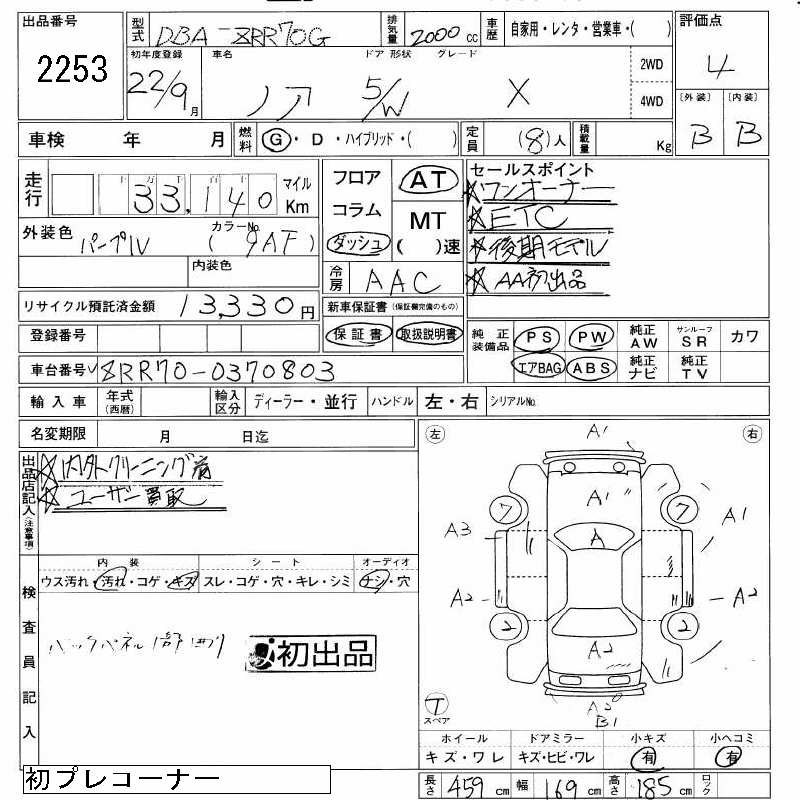 出品番号 型式 DBA-ZRR70G 排気量 2000 cc 車歴 自家用・レンタ・営業車・( ) 評価点
2253 4
初年度登録 車名 ドア 形状 グレード 2WD
22/9 月 ノア 5/W X 4WD
〔外装〕 〔内装〕
B B
車検 年 月 燃料 G・D・ハイブリッド・( ) 定員 (8)人 積載量 Kg
走行 十 万 千 百 十 33,140 マイル Km
フロア コラム ダッシュ
AT MT ( )速
セールスポイント
★ワンオーナー
★ETC
★後期モデル
★AA初出品
外装色 パープルV カラーNo. (9AF)
内装色
冷房 AAC
リサイクル預託済金額 13,330 円
新車保証書(保証欄完備のもの)
登録番号 保証書 取扱説明書
純正装備品 PS PW 純正AW サンルーフSR カワ
エアBAG ABS 純正ナビ 純正TV
車台番号 ZRR70-0370803
輸入車 年式(西暦) 輸入区分 ディーラー・並行 ハンドル 左・右 シリアルNo.
名変期限 月 日迄
出品店記入(注意事項)
★内外クリーニング済
★ユーザー買取
左 右
A1
A1
7 7
A1
A3
A
A2 A2
2 2
A2
A2
B1
T
スペア
内装 シート オーディオ
ウス汚れ・汚れ・コゲ・キズ スレ・コゲ・穴・キレ・シミ ナシ・穴
検査員記入
バックパネル
初出品
ホイール ドアミラー 小キズ 小ヘコミ
キズ・ワレ キズ・ヒビ・ワレ 有 有
初プレコーナー
長さ 459 cm 幅 169 cm 高さ 185 cm ロック